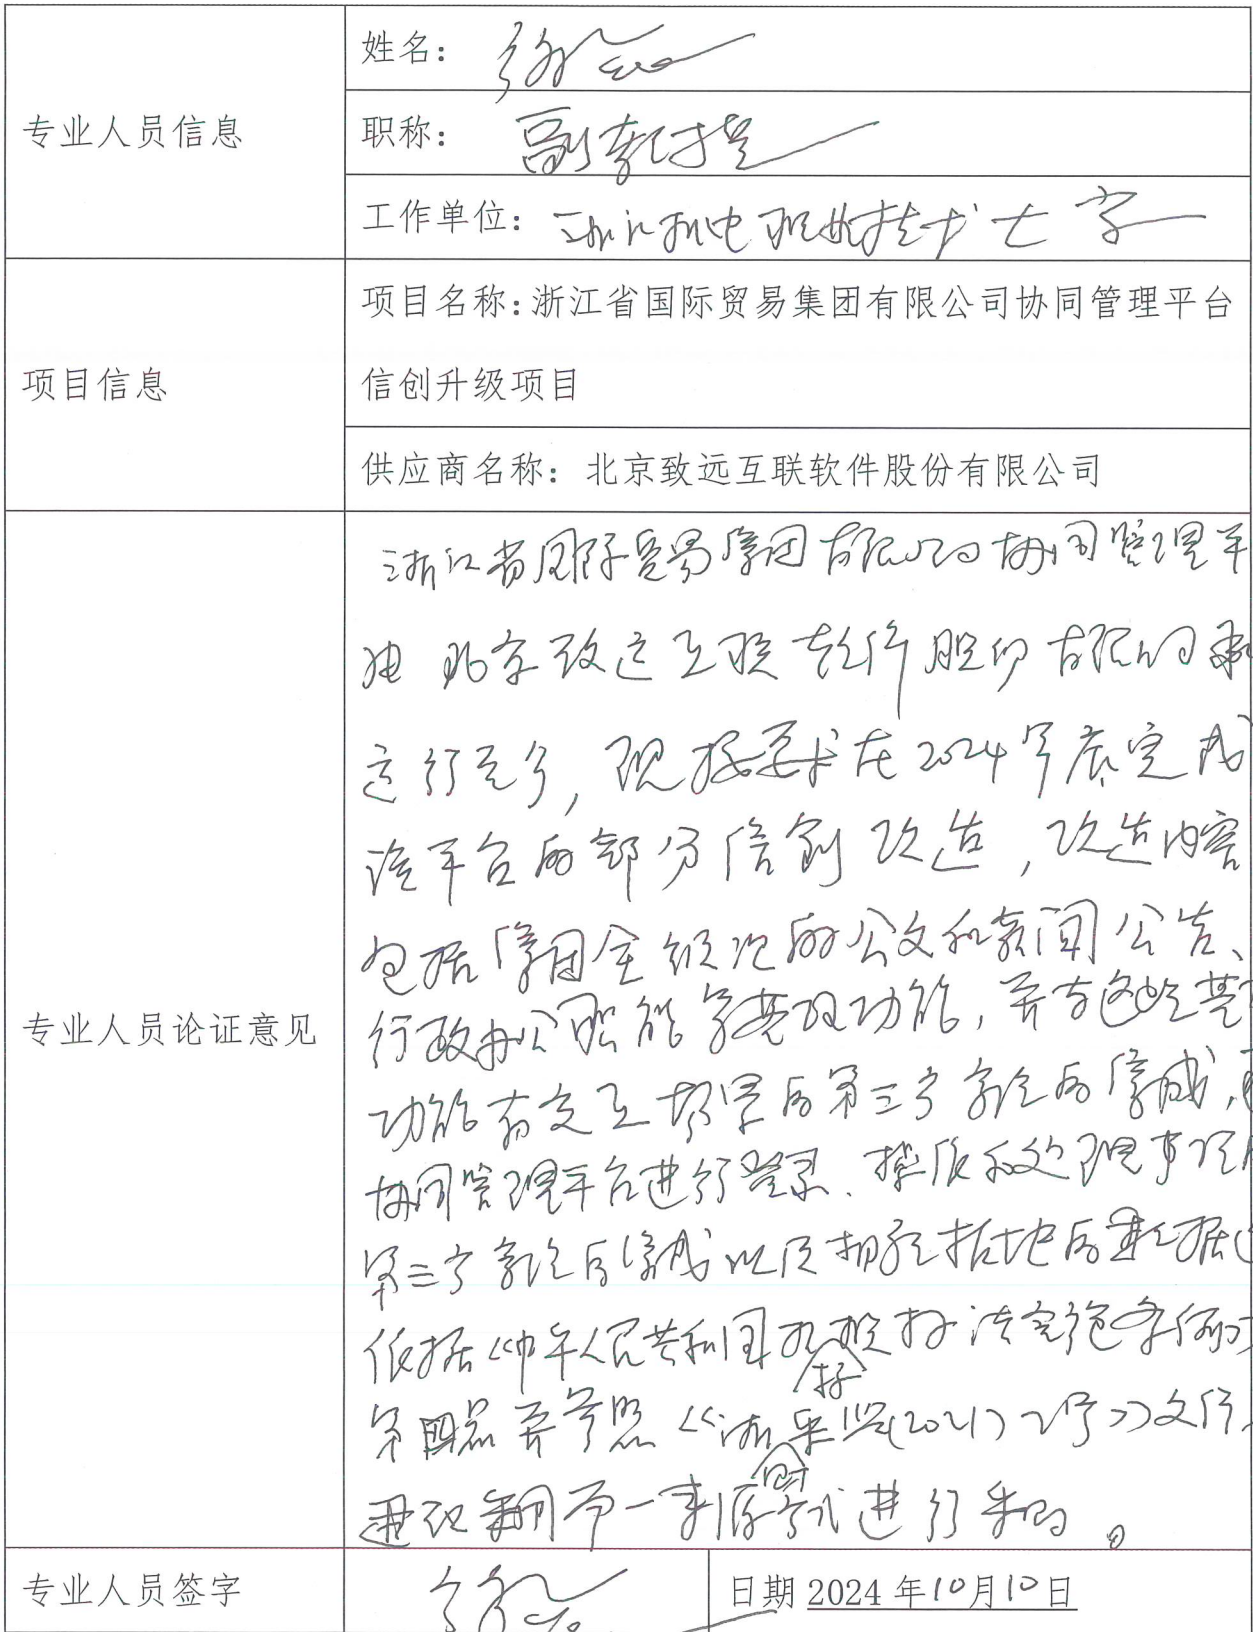 专业人员信息
姓名:
职称: 副教授
工作单位: 浙江机电职业技术大学
项目信息
项目名称:浙江省国际贸易集团有限公司协同管理平台
信创升级项目
供应商名称: 北京致远互联软件股份有限公司
专业人员论证意见
浙江省国际贸易集团有限公司协同管理平
由北京致远互联软件股份有限公司承
在2024年底完成
该平台的部分信创改造,改造内容
包括集团全级次的公文和新闻公告、
行政办公职能等基础功能,并与这些基
功能有交互场景的第三方系统的集成,
协同管理平台进行登录、操作和处理事项
第三方系统的集成以及
依据《中华人民共和国招投标法实施条例》
并参照《浙财采监(2021)22号》文件,
单一来源方式进行采购。
专业人员签字
日期 2024 年10月10日